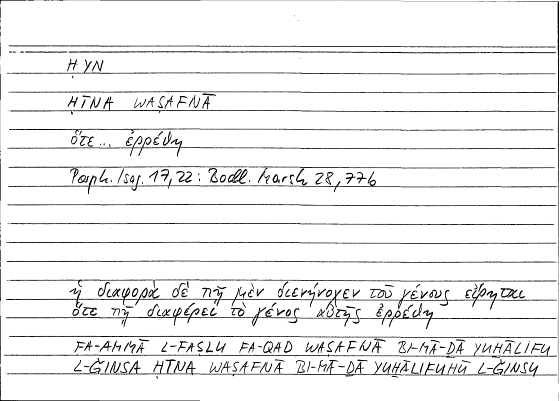 ḤYN
ḤĪNA WAṢAFNĀ
ὅτε... ἐρρέθη
Porph. Isag. 17,22: Bodl. Marsh 28,77b
ἡ διαφορὰ δὲ πῇ μὲν διενήνοχεν τοῦ γένους εἴρηται
ὅτε πῇ διαφέρει τὸ γένος αὐτῆς ἐρρέθη
FA-AMMĀ L-FAṢLU FA-QAD WAṢAFNĀ BI-MĀ-ḎĀ YUḪĀLIFU
L-ĞINSA ḤĪNA WAṢAFNĀ BI-MĀ-ḎĀ YUḪĀLIFUHŪ L-ĞINSU